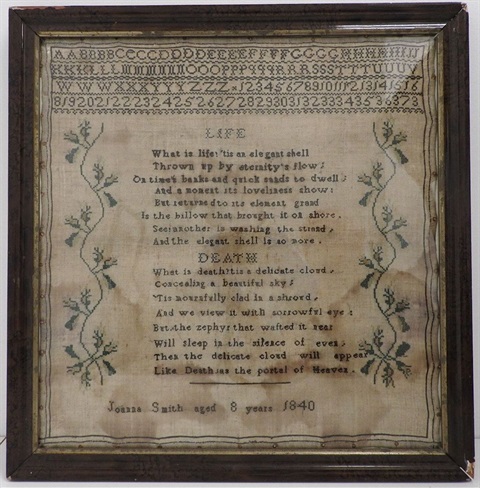 AABBBBCCCCDDDDEEEEFFFFGGGGHHHHIIJJ
WWWXXXYYYZZZ 12345678910111213141516
LIFE
What is life? 'tis an elegant shell
Thrown up by eternity's flow;
On time's banks and quick sands to dwell;
And a moment its loveliness show:
But returned to its element grand
Is the billow that brought it on shore,
See! another is washing the strand,
And the elegant shell is no more.
DEATH
What is death? tis a delicate cloud,
Concealing a beautiful sky;
'Tis mournfully clad in a shroud,
And we view it with sorrowful eye:
But the zephyr that wafted it near
Will sleep in the silence of even;
Then the delicate cloud will appear
Like Death: as the portal of Heaven.
Joanna Smith aged 8 years 1840